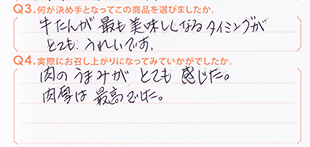 Q3.何が決め手となってこの商品を選びましたか。
牛たんが最も美味しくなるタイミングが
とても うれしいです。
Q4.実際にお召し上がりになってみていかがでしたか。
肉のうまみが とても 感じた。
肉厚は 最高でした。